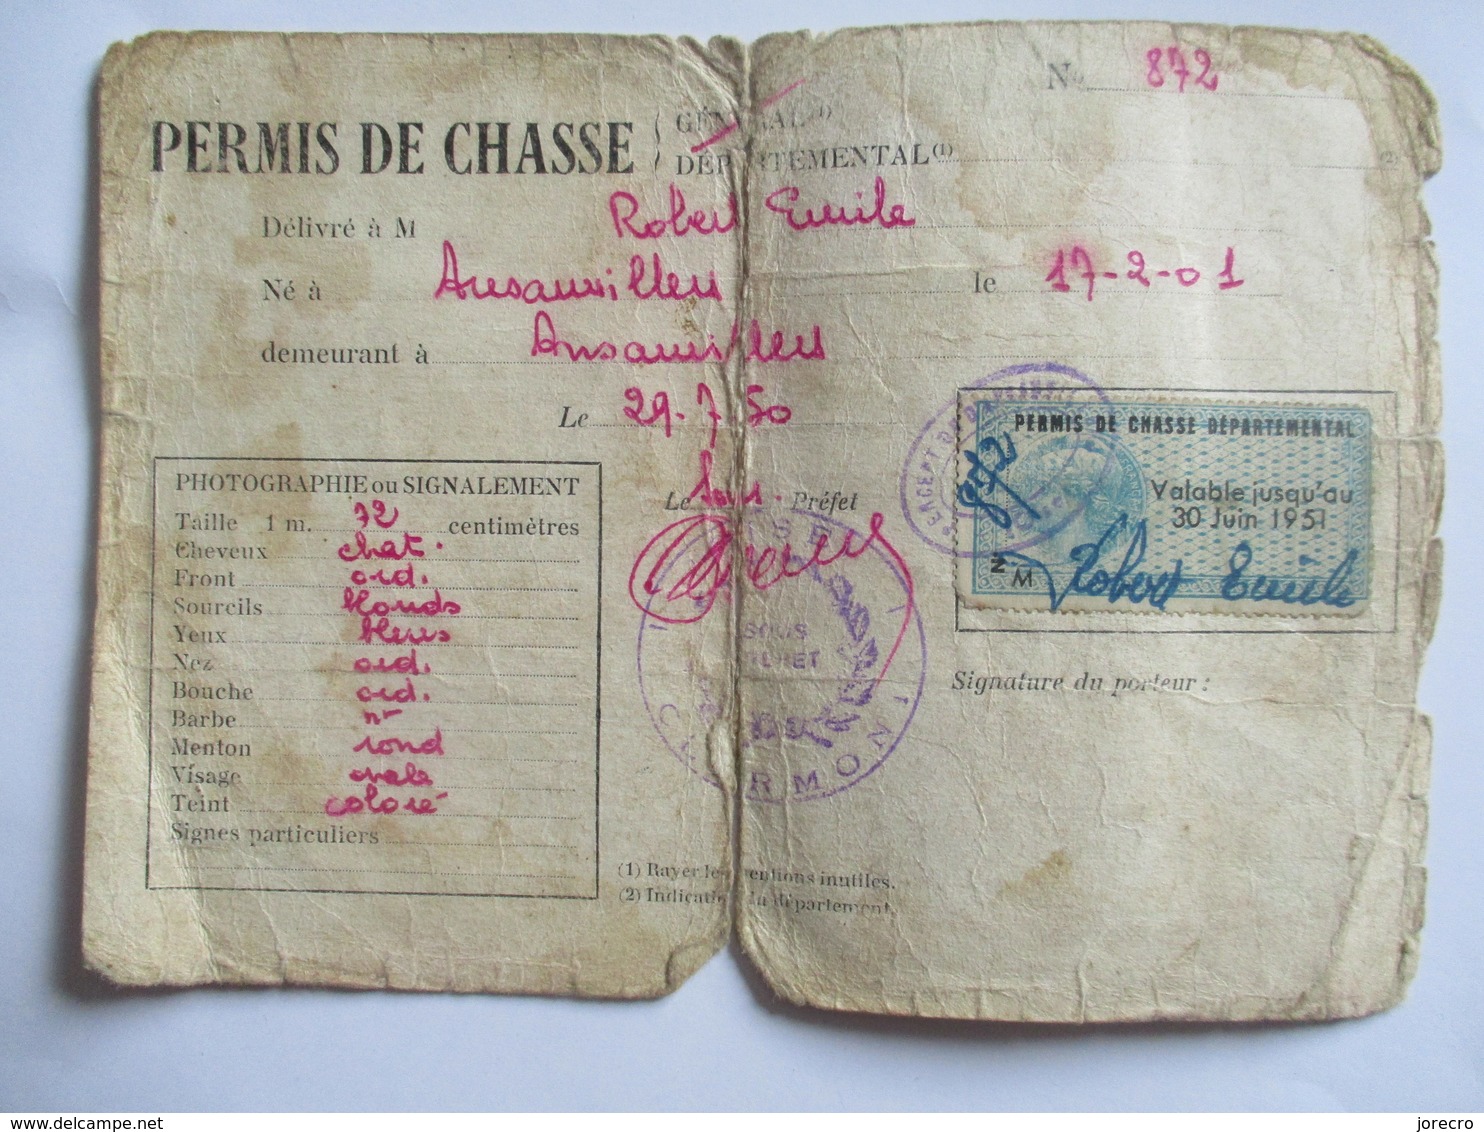 N° 872
PERMIS DE CHASSE { GÉNÉRAL (1)
DÉPARTEMENTAL (1) (2)
Délivré à M Robert Emile
Né à Ansauvillers le 17-2-01
demeurant à Ansauvillers
Le 29-7-50
Le Sous. Préfet
PHOTOGRAPHIE ou SIGNALEMENT
Taille 1 m. 72 centimètres
Cheveux chat.
Front ord.
Sourcils blonds
Yeux bleus
Nez ord.
Bouche ord.
Barbe
Menton rond
Visage ovale
Teint coloré
Signes particuliers
SOUS
PREFET
CLERMONT
(1) Rayer les mentions inutiles.
(2) Indication du département.
PERMIS DE CHASSE DÉPARTEMENTAL
872
Valable jusqu'au
30 Juin 1951
M Robert Emile
Signature du porteur :
delcampe.net
jorecro